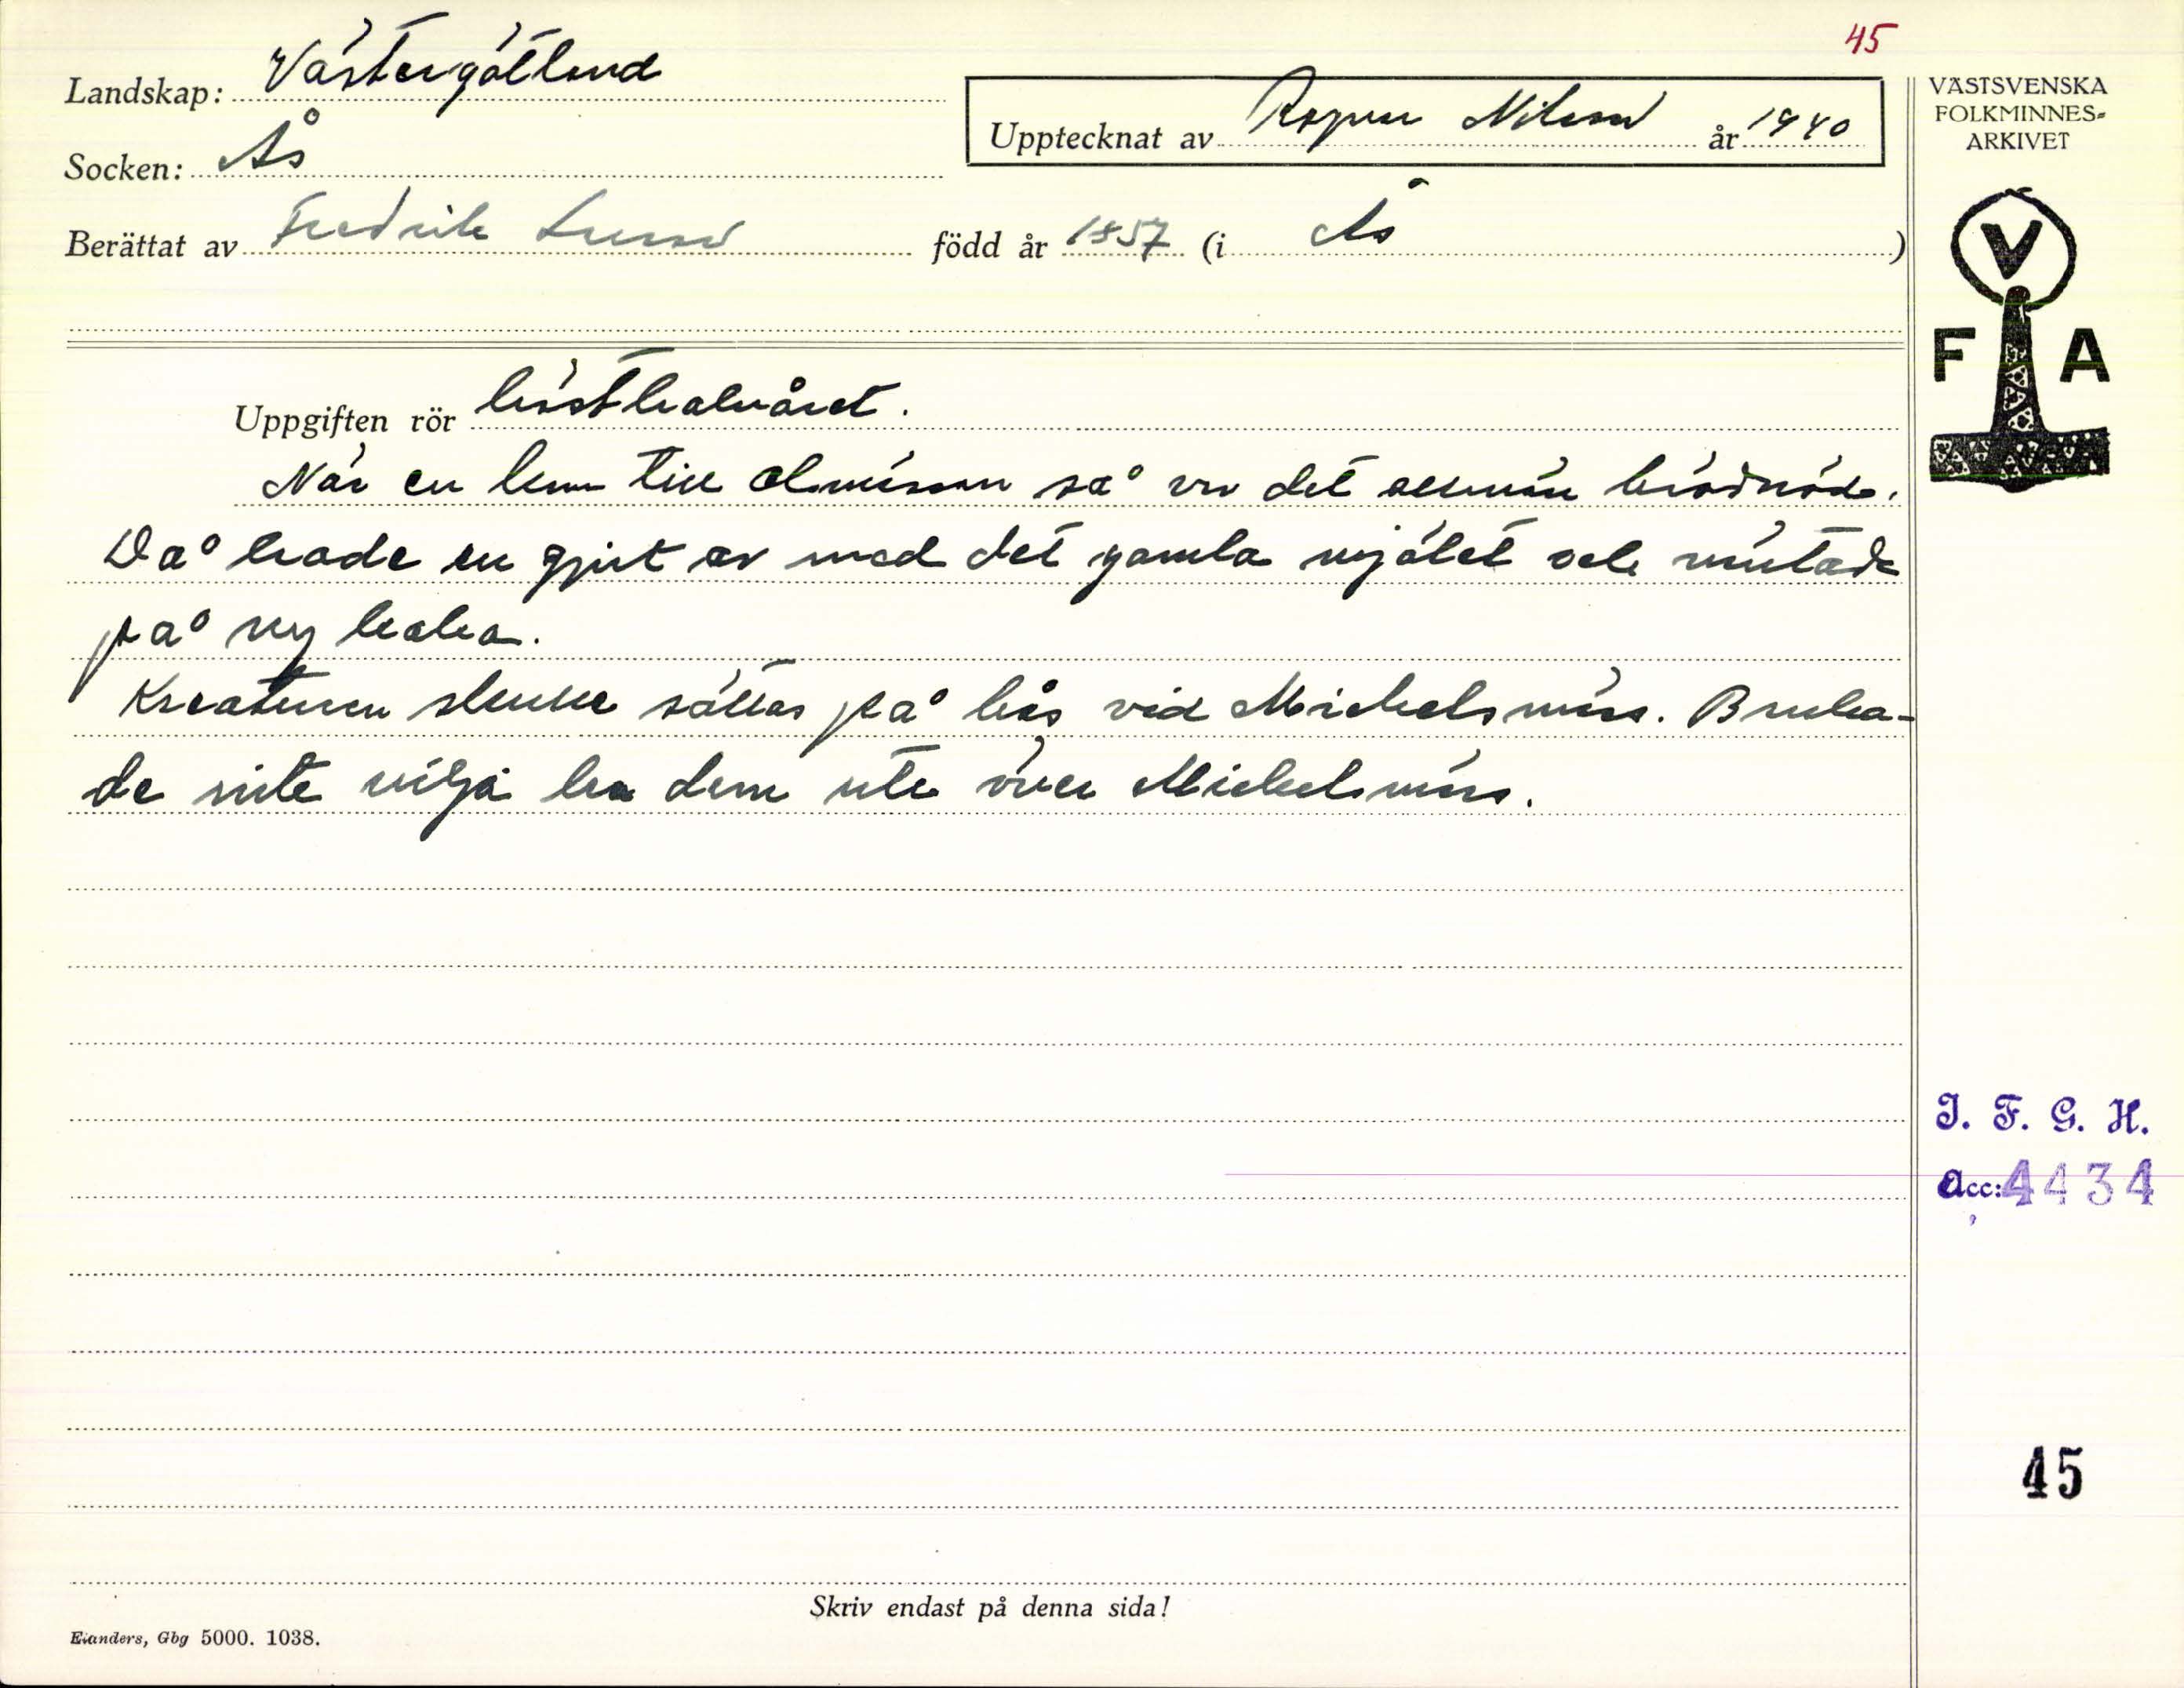 45
Landskap: Västergötland
Upptecknat av Ragnar Nilsson år 1940
VÄSTSVENSKA
FOLKMINNES-
ARKIVET
Socken: Ås
Berättat av Fredrik født år 1857 (i Ås )
V
F A
Uppgiften rör höstkalvåret.
När en kom till olmässan så var det allmän brödnöd.
Då hade en gjort av med det gamla mjölet och väntade
på ny kaka.
Kreaturen skulle sättas på bås vid Mickelsmäss. Bruka-
de inte vilja ha dem ute över Mickelsmäss.
I. F. G. H.
Acc: 4434
45
Skriv endast på denna sida!
Elanders, Gbg 5000. 1038.